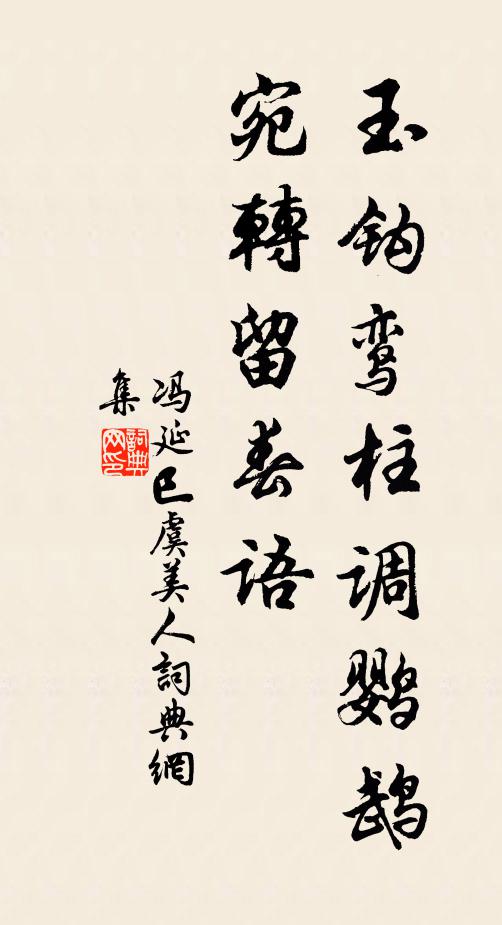 玉钩鸾柱调鹦鹉
宛轉留春语
冯延巳虞美人詞典網
集
詞典
网印